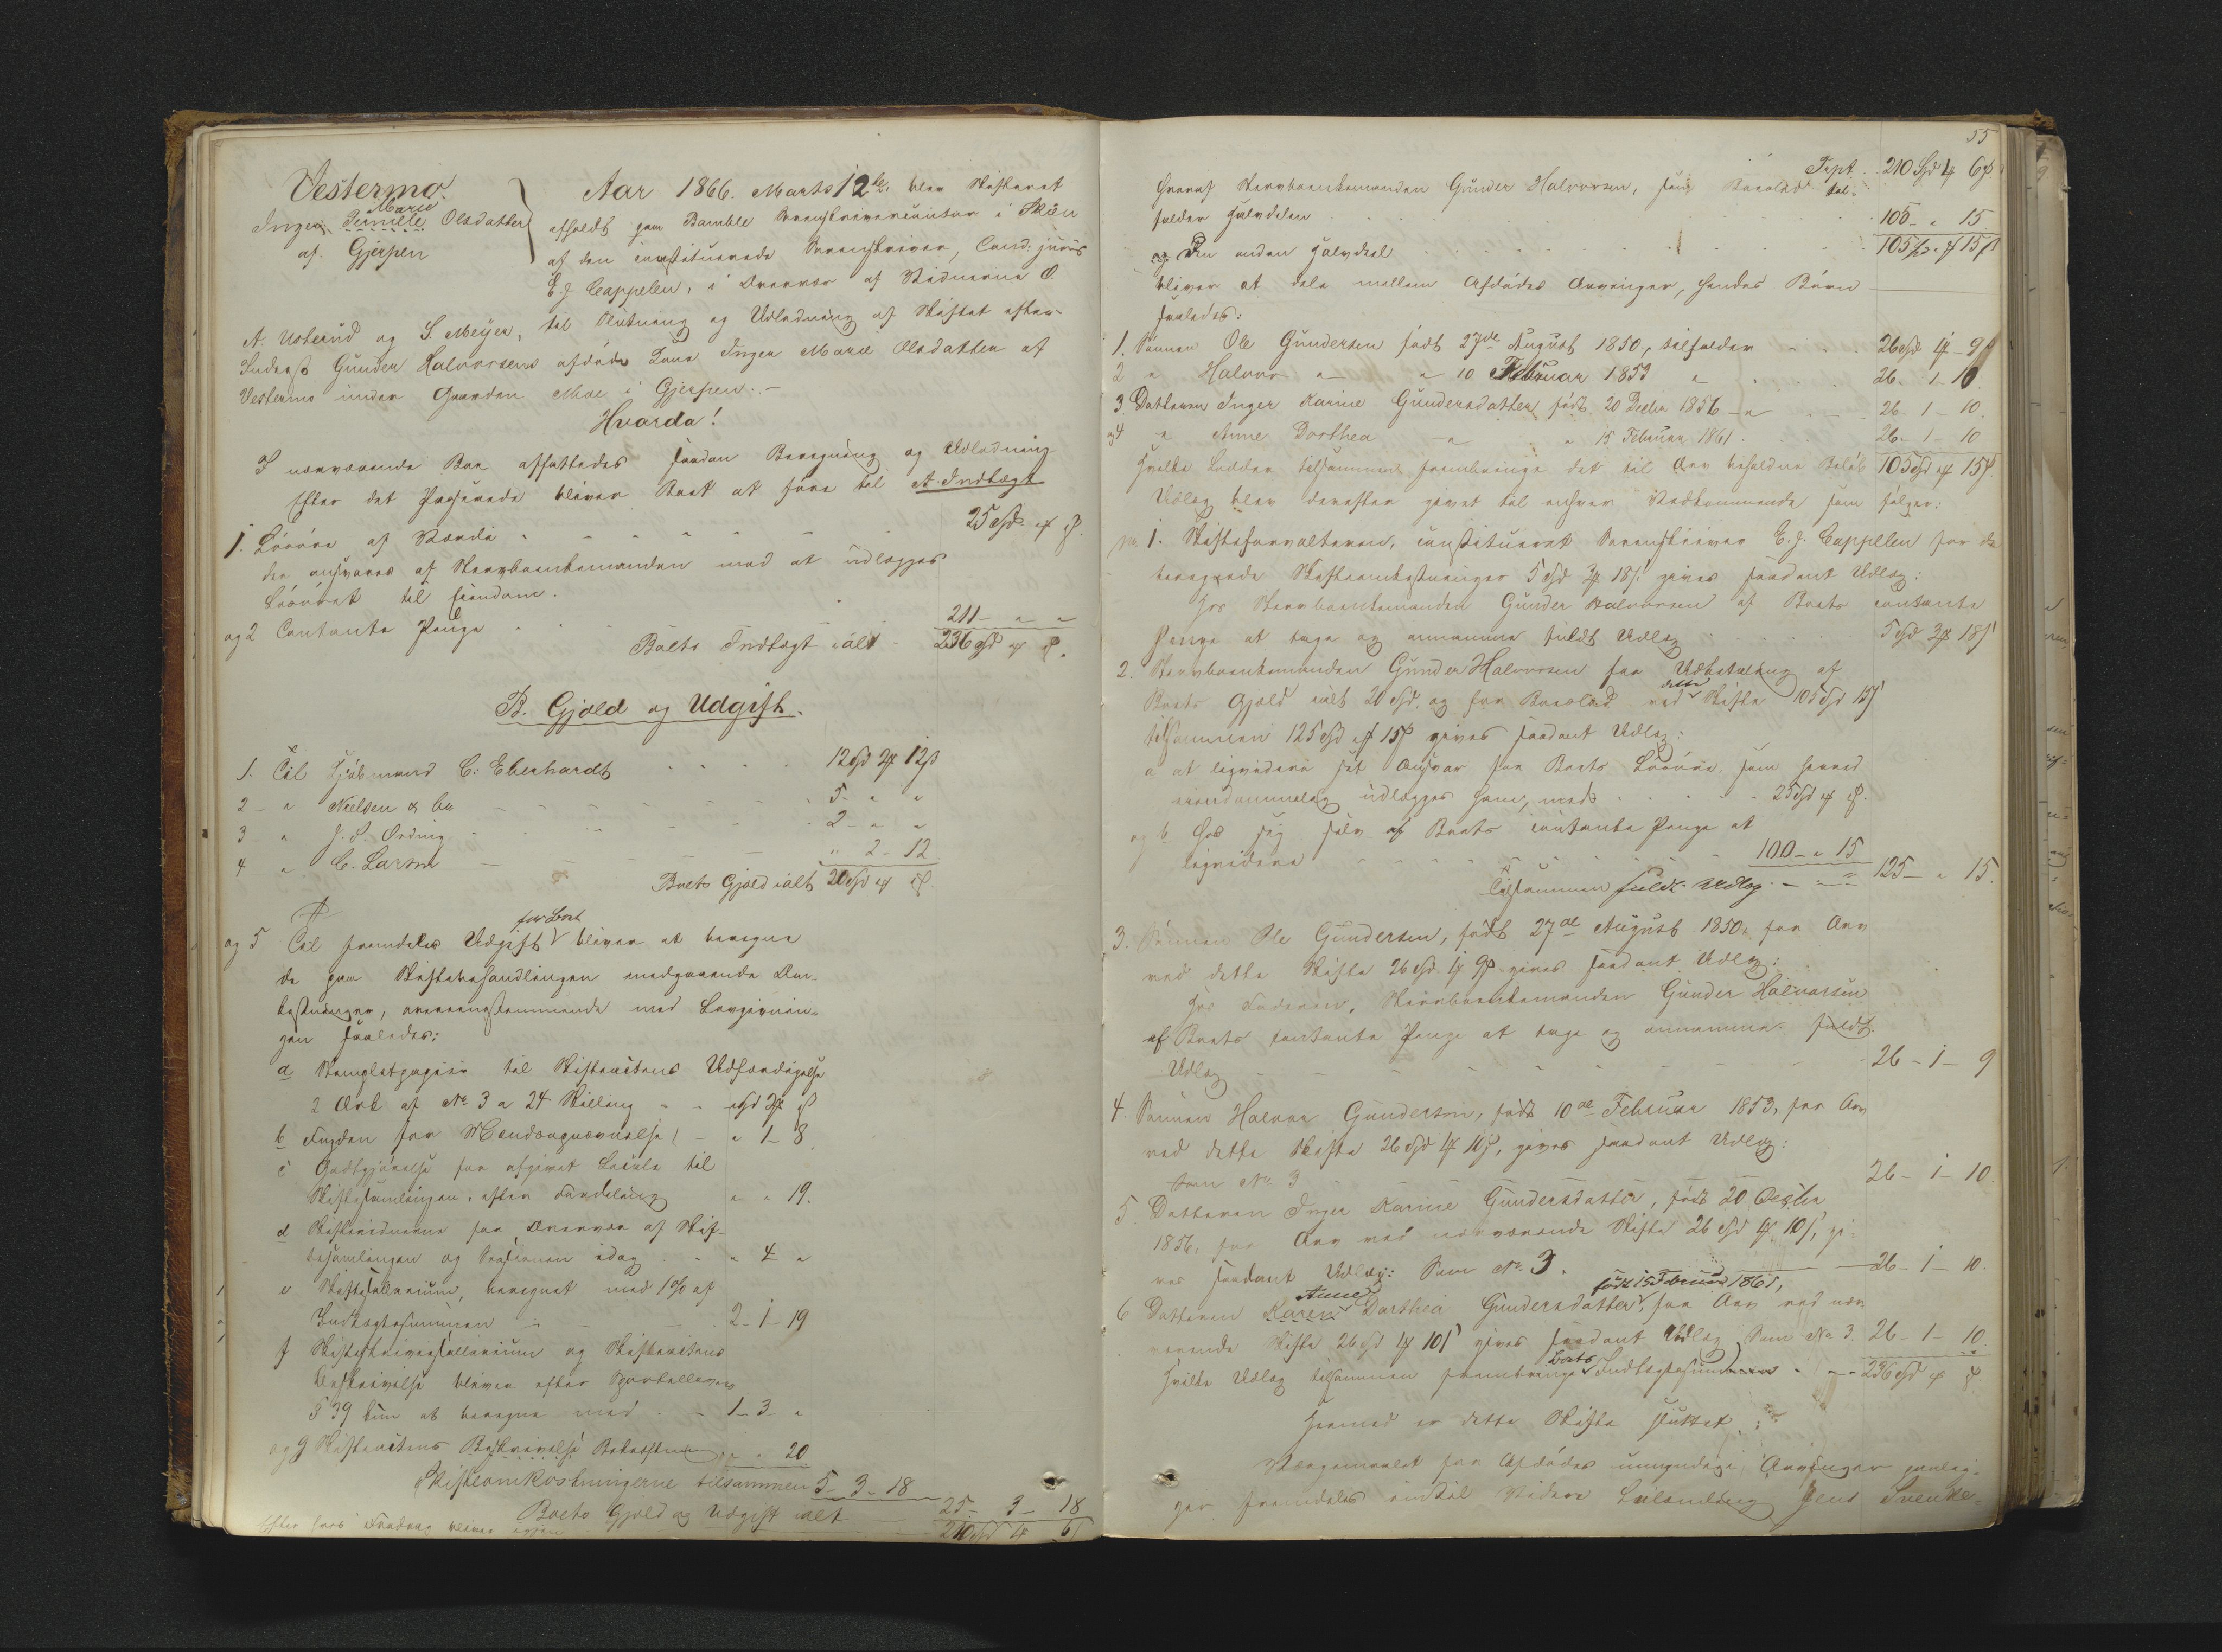 Vestermo.
Inger Pernille Marie Olsdatter
af Gjerpen
Aar 1866. Marts 12te, blev Skifteret
afholdt paa Bamble Sorenskrivercontor i Skien
af den constituerede Sorenskriver, Cand: juris
E. J. Cappelen, i Overvær af Vidnerne O.
A. Usterud og S. Meyer, til Slutning og Udlodning af Skiftet efter
Inderst Gunder Halvorsens afdøde Kone Inger Marie Olsdatter af
Vestermo under Gaarden Moe i Gjerpen. –
Hvorda!
I nærværende Boe affattedes saadan Beregning og Udlodning
Efter det Passerede bliver Boet at føre til A. Indtægt
1. Løsøre af Værdi 25 Spd " ꝑ " ß.
der ansvares af Stervboenkemanden med at udlægges
Løsøret til Eiendom.
og 2 Contante Penge 211 – " – "
Boets Indtægt ialt 236 Spd " ꝑ " ß.
B. Gjæld og Udgift.
1. Til Kjøbmand C. Eberhardt 12 Spd 2 ꝑ 12 ß
2 – " Nielsen & Co 5 – " "
3 – " J. S. Ording 2 – " "
4 " C. Larsen " 2 – 12
Boets Gjæld ialt 20 Spd " ꝑ " ß.
og 5 Til fremdeles Udgift for Boet bliver at beregne
de paa Skiftebehandlingen medgaaende Om-
kostninger, overensstemmende med Lovgivnin-
gen saaledes:
a Stemplet papir til Skifteactens Udfærdigelse
2 Ark af No 3 a 24 Skilling " Spd 2 ꝑ " ß
b Fogden for Mændsopnævnelse – " 1 – 8
c Godtgjørelse for afgivet Locale til
Skiftesamlingen, efter Fordeling " " 19.
d Skiftevidnerne for Overvær af Skif-
tesamlingen og Sessionen idag " 4 "
e Skiftesallarium, beregnet med 1 % af
Indtægtssummen 2 – 1 – 19
f Skifteskriversallarium og Skifteactens
Beskrivelse bliver efter Sportelloven
§ 39 kun at beregne med 1 – 3 "
og g Skifteactens Beskrivelse Bekostning " " 20.
Skifteomkostningerne tilsammen 5 – 3 – 18
Boets Gjæld og Udgift ialt 25 – 3 – 18
Efter hvis Fradrag bliver igjen 210 Spd 1 ꝑ 6 ß
55
Tspt. 210 Spd 1 ꝑ 6 ß
hvoraf Stervboenkemanden Gunder Halvorsen, som Boeslod til-
falder Halvdelen 105 – " 15
og Den anden Halvdeel 105 Spd " ꝑ 15 ß
bliver at dele mellem Afdødes Arvinger, hendes Børn
saaledes:
1. Sønnen Ole Gundersen født 27de August 1850, tilfalder 26 Spd 1 ꝑ 9 ß
2 " Halvor " " 10 Februar 1853 " 26 – 1 – 10.
3. Datteren Inger Karine Gundersdatter født 20 Decbr 1856 – " 26 – 1 – 10.
og 4 " Anne Dorthea – " " 15 Februar 1861 26 – 1 – 10
hvilke Lodder tilsammen frembringe det til Arv befaldne Beløb 105 Spd " ꝑ 15 ß.
Udlæg blev derefter givet til enhver Vedkommende som følger:
No 1. Skifteforvalteren, constitueret Sorenskriver E. J. Cappelen for de
beregnede Skifteomkostninger 5 Spd 3 ꝑ 18 ß gives saadant Udlæg:
hos Stervboenkemanden Gunder Halvorsen af Boets contante
Penge at tage og annamme fuldt Udlæg 5 Spd 3 ꝑ 18 ß
2. Stervboenkemanden Gunder Halvorsen for Udbetaling af
Boets Gjæld ialt 20 Spd. og for Boeslod ved dette Skifte 105 Spd 15 ß
tilsammen 125 Spd " ꝑ 15 ß gives saadant Udlæg:
a at liqvidere sit Ansvar for Boets Løsøre, som herved
eiendommelig udlægges ham, med 25 Spd " ꝑ " ß.
og b hos sig selv af Boets contante Penge at
liqvidere 100 – " 15
Tilsammen fuldt Udlæg. – 125 – " 15.
3. Sønnen Ole Gundersen, født 27de August 1850, for Arv
ved dette Skifte 26 Spd. 1 ꝑ 9 ß gives saadant Udlæg:
hos Faderen, Stervboenkemanden Gunder Halvorsen
af Boets contante Penge at tage og annamme fuldt
Udlæg 26 – 1 – 9
4. Sønnen Halvor Gundersen, født 10de Februar 1853, for Arv
ved dette Skifte 26 Spd 1 ꝑ 10 ß, gives saadant Udlæg:
som No 3 26 – 1 – 10.
5 Datteren Inger Karine Gundersdatter, født 20 Decbr
1856, for Arv ved nærværende Skifte 26 Spd 1 ꝑ 10 ß, gi-
ves saadant Udlæg: Som No 3. 26 – 1 – 10.
6 Datteren Karen Anne Dorthea Gundersdatter, født 15 Februar 1861, for Arv ved nær-
værende Skifte 26 Spd 1 ꝑ 10 ß gives saadant Udlæg Som No 3. 26 – 1 – 10
hvilke Udlæg tilsammen frembringe Boets Indtægtssummen 236 Spd " ꝑ " ß
Hermed er dette Skifte sluttet.
Værgemaalet for Afdødes umyndige Arvinger paalig-
ger fremdeles indtil Videre Lensmand Jens Svenke-